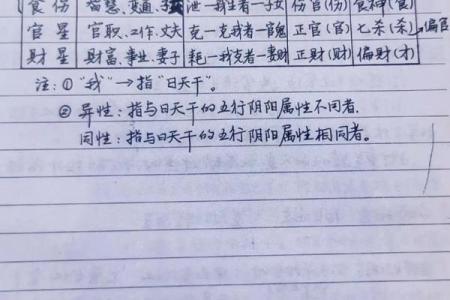 食伤 智慧、交通、子女 泄—我生者—子女 伤官(伤) 食神(食)
官星 官职、工作、丈夫 克—克我者—官鬼 正官(官) 七杀(杀) →偏官
财星 财富、事业、妻子 耗—我克者—妻财 正财(财) 偏财(才)
注:①“我”→指“日天干”。
②异性:指与日天干的五行阴阳属性不同者.
同性:指与日天干的五行阴阳属性相同者。